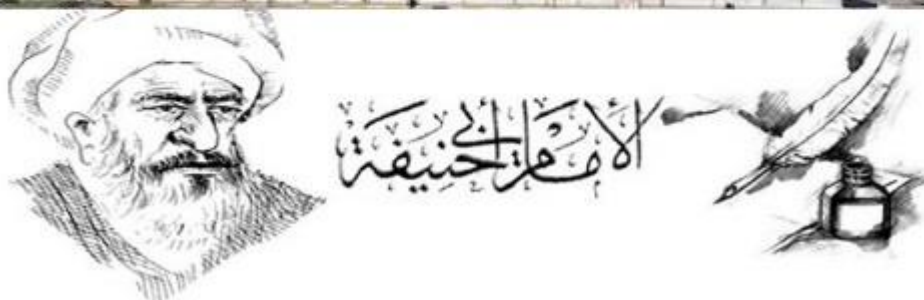 الأمام أبي حنيفة